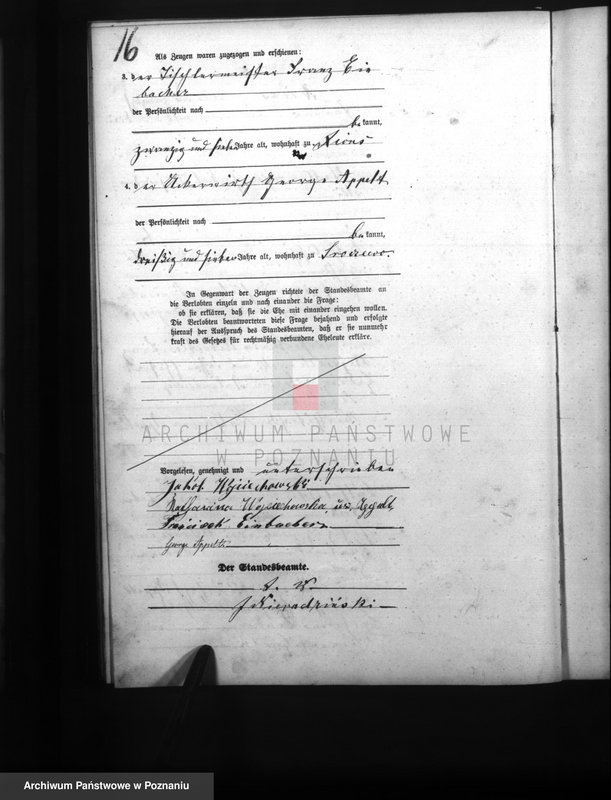 16
Als Zeugen waren zugezogen und erschienen:
3. der Tischlermeister Franz Ein
bacher
der Persönlichkeit nach
be kannt,
zwanzig und sieben Jahre alt, wohnhaft zu Xions
4. der Ackerwirth George Appelt
der Persönlichkeit nach
be kannt,
dreißig und sieben Jahre alt, wohnhaft zu
In Gegenwart der Zeugen richtete der Standesbeamte an
die Verlobten einzeln und nach einander die Frage:
ob sie erklären, daß sie die Ehe mit einander eingehen wollen.
Die Verlobten beantworteten diese Frage bejahend und erfolgte
hierauf der Ausspruch des Standesbeamten, daß er sie nunmehr
kraft des Gesetzes für rechtmäßig verbundene Eheleute erkläre.
ARCHIWUM PAŃSTWOWE
W POZNANIU
Vorgelesen, genehmigt und unterschrieben
Jakób Wojciechowski
Katharina Wojciechowska, Appelt
Einbacher
George Appelt
Der Standesbeamte.
Archiwum Państwowe w Poznaniu